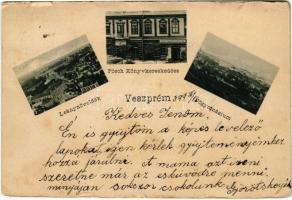 Pósch Könyvkereskedése
Leánynövelde
Veszprém
Kedves Jenőm.
Én is gyűjtöm a képes levelező
lapokat, igen kérlek gyűjteményemhez
hozzá járulni. A mama azt izeni
szeretne már az esküvődre menni
minnyájan sokszor csokolunk